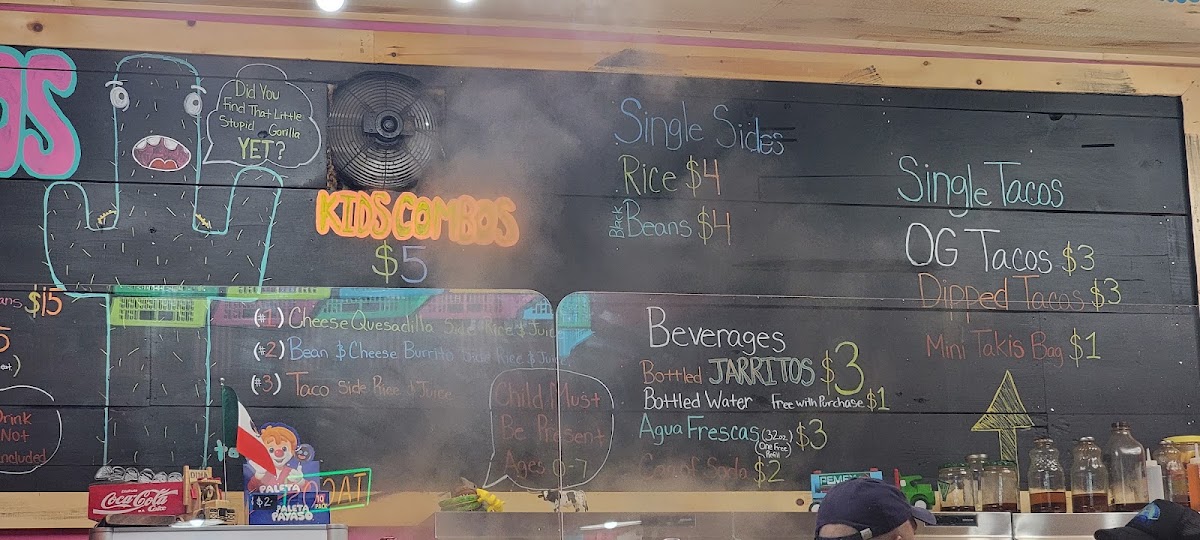 OS
Did You
Find That Little
Stupid Gorilla
YET?
KIDS COMBOS
$5
(#1) Cheese Quesadilla Side Rice & Juice
(#2) Bean & Cheese Burrito Side Rice & Juice
(#3) Taco Side Rice & Juice
Child Must
Be Present
Ages 0-7
$15
Drink
Not
Included
Single Sides
Rice $4
Black Beans $4
Beverages
Bottled JARRITOS $3
Bottled Water Free with Purchase $1
Agua Frescas (32oz) $3
(One Free
Refill)
Can of Soda $2
Single Tacos
OG Tacos $3
Dipped Tacos $3
Mini Takis Bag $1
Coca-Cola
Coke
PALETA
PAYASO
$2
PALETA
PAYASO